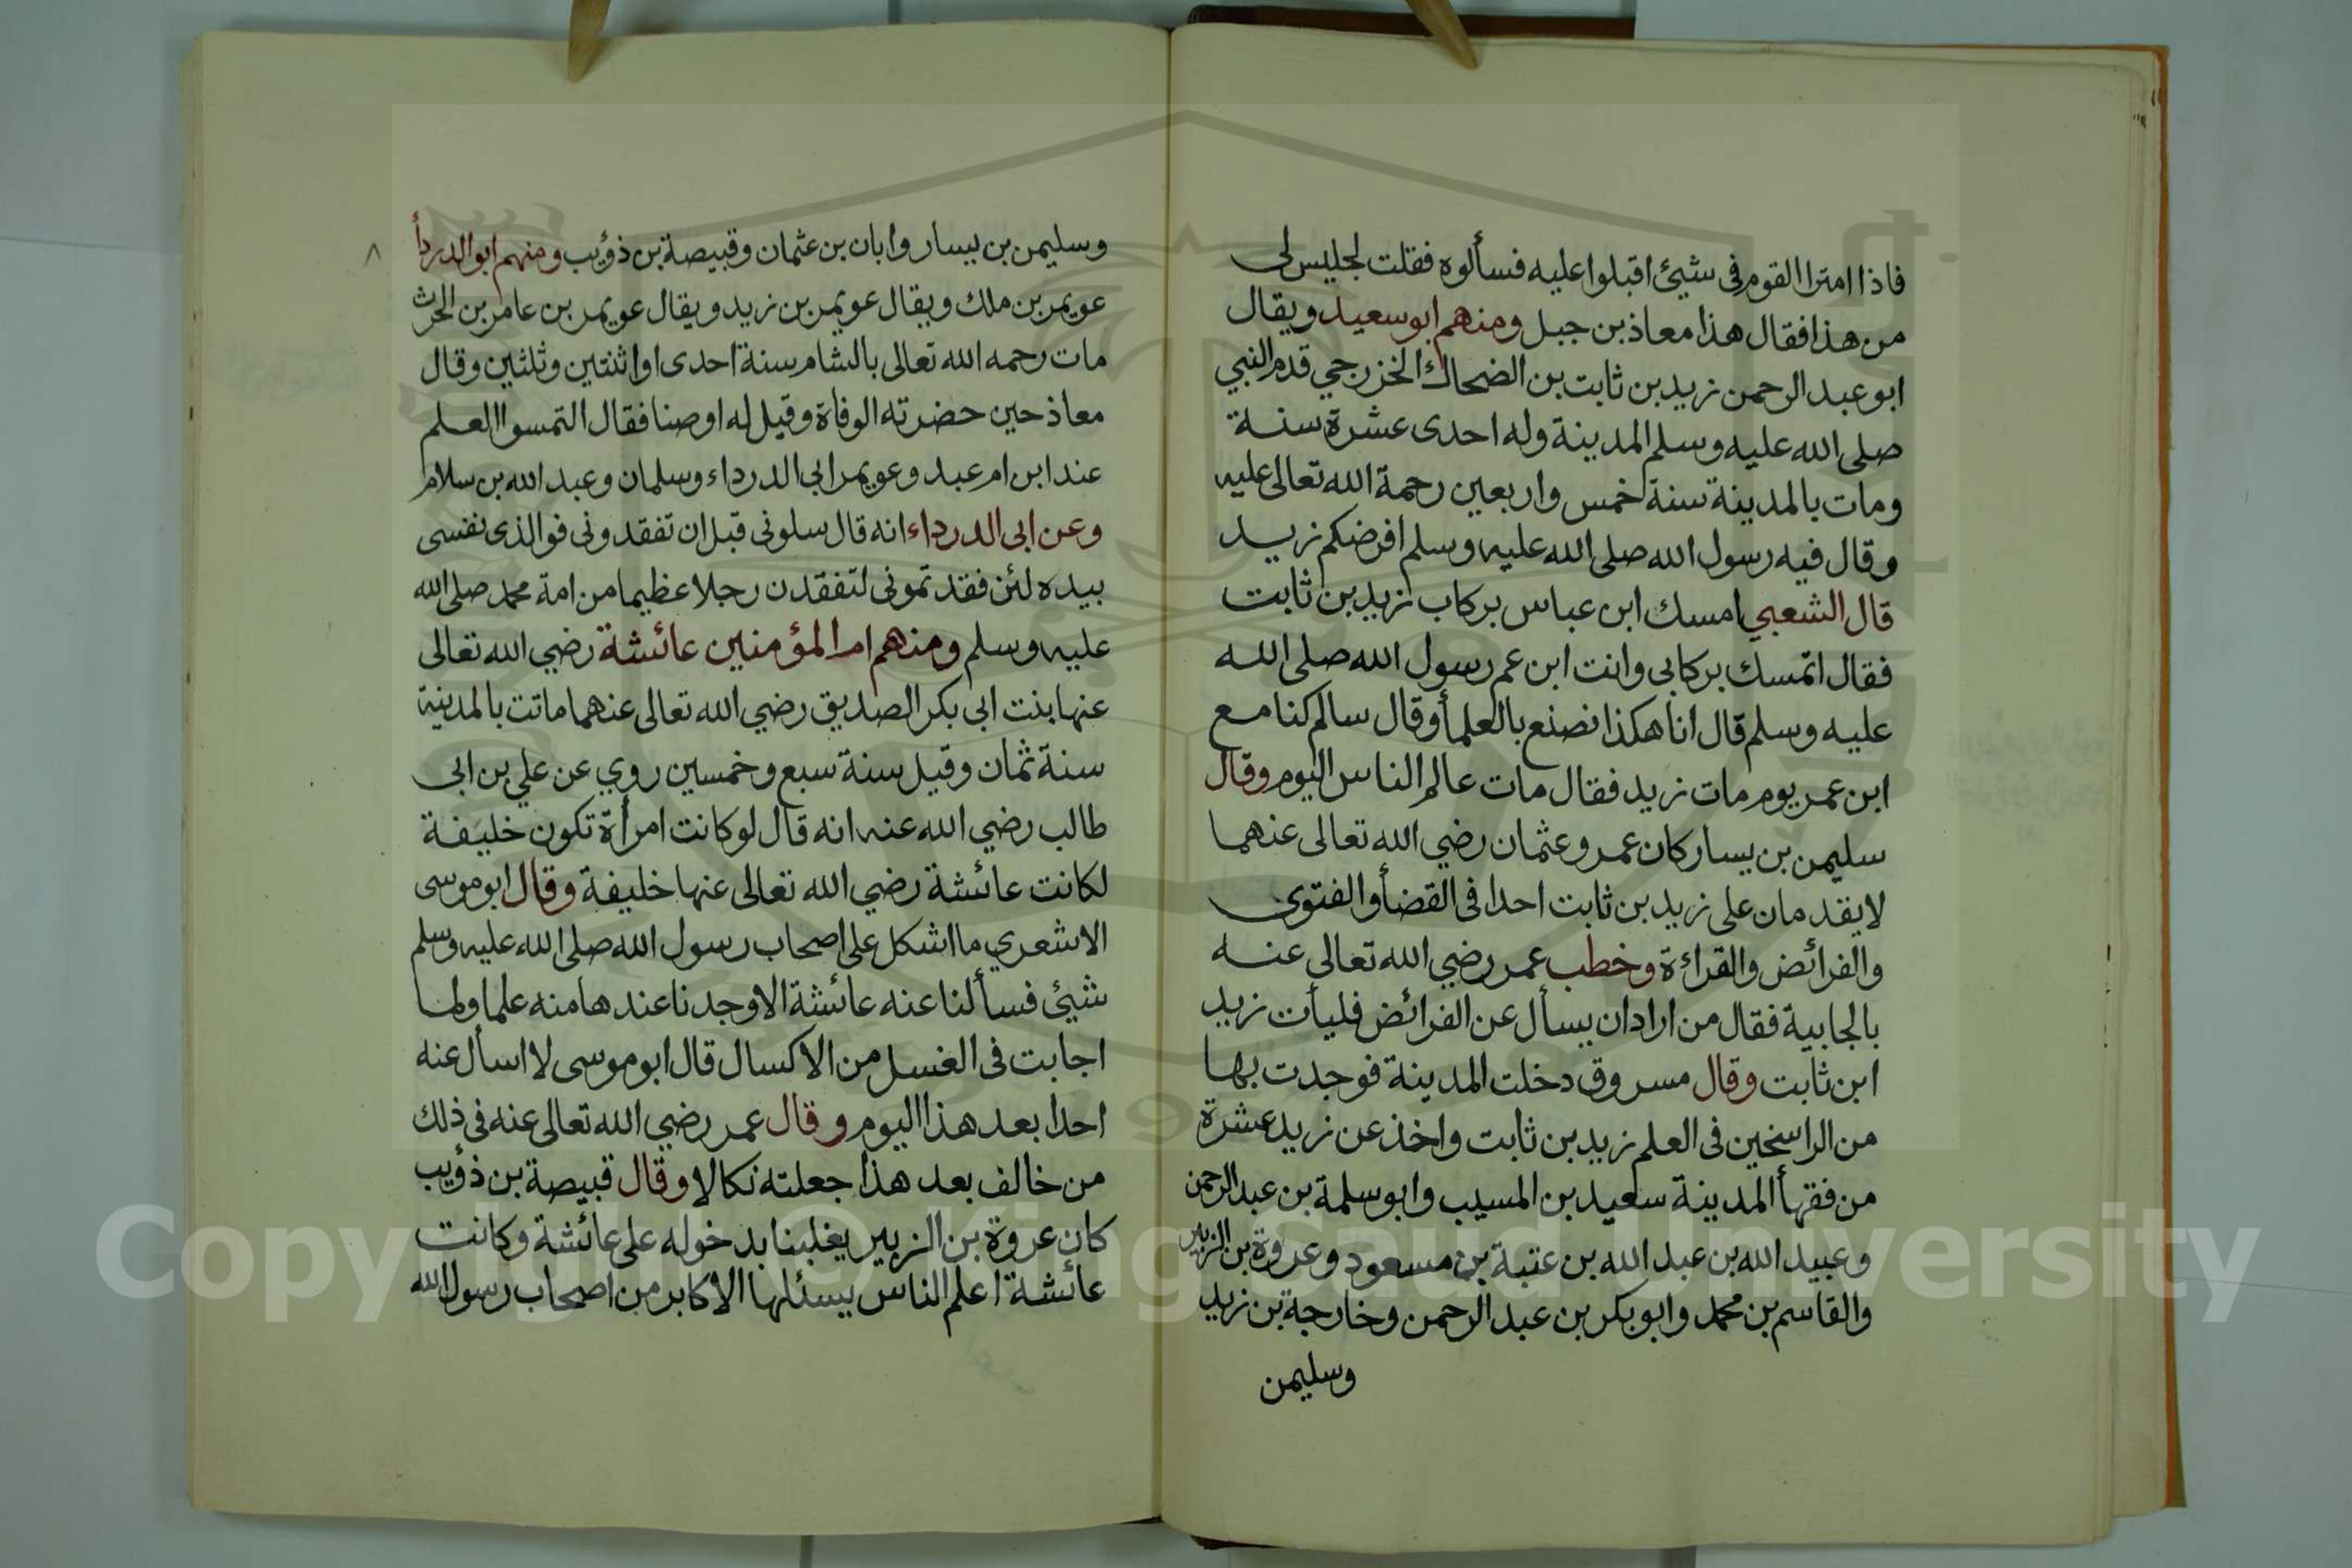 فاذا امترا القوم فى شيئ اقبلوا عليه فسألوه فقلت لجليس لى
من هذا فقال هذا معاذ بن جبل ومنهم ابو سعيد ويقال
ابو عبد الرحمن زيد بن ثابت بن الضحاك الخزرجي قدم النبي
صلى الله عليه وسلم المدينة وله احدى عشرة سنة
ومات بالمدينة سنة خمس واربعين رحمة الله تعالى عليه
وقال فيه رسول الله صلى الله عليه وسلم افرضكم زيد
قال الشعبي امسك ابن عباس بركاب زيد بن ثابت
فقال اتمسك بركابى وانت ابن عم رسول الله صلى الله
عليه وسلم قال انا هكذا نصنع بالعلمأ وقال سالم كنا مع
ابن عمر يوم مات زيد فقال مات عالم الناس اليوم وقال
سليمن بن يسار كان عمر وعثمان رضي الله تعالى عنهما
لا يقدمان على زيد بن ثابت احدا فى القضأ والفتوى
والفرائض والقراءة وخطب عمر رضي الله تعالى عنه
بالجابية فقال من اراد ان يسأل عن الفرائض فليأت زيد
ابن ثابت وقال مسروق دخلت المدينة فوجدت بها
من الراسخين فى العلم زيد بن ثابت واخذ عن زيد عشرة
من فقهأ المدينة سعيد بن المسيب وابو سلمة بن عبد الرحمن
وعبيد الله بن عبد الله بن عتبة بن مسعود وعروة بن الزبير
والقاسم بن محمد وابو بكر بن عبد الرحمن وخارجة بن زيد
وسليمن
٨
وسليمن بن يسار وابان بن عثمان وقبيصة بن ذؤيب ومنهم ابو الدردأ
عويمر بن ملك ويقال عويمر بن زيد ويقال عويمر بن عامر بن الحرث
مات رحمه الله تعالى بالشام سنة احدى او اثنتين وثلثين وقال
معاذ حين حضرته الوفاة وقيل له اوصنا فقال التمسوا العلم
عند ابن ام عبد وعويمر ابي الدرداء وسلمان وعبد الله بن سلام
وعن ابى الدرداء انه قال سلونى قبل ان تفقدونى فوالذى نفسى
بيده لئن فقدتمونى لتفقدن رجلا عظيما من امة محمد صلى الله
عليه وسلم ومنهم ام المؤمنين عائشة رضي الله تعالى
عنها بنت ابى بكر الصديق رضي الله تعالى عنهما ماتت بالمدينة
سنة ثمان وقيل سنة سبع وخمسين روي عن علي بن ابى
طالب رضي الله عنه انه قال لو كانت امرأة تكون خليفة
لكانت عائشة رضي الله تعالى عنها خليفة وقال ابو موسى
الاشعري ما اشكل على اصحاب رسول الله صلى الله عليه وسلم
شيئ فسألنا عنه عائشة الا وجدنا عندها منه علما ولما
اجابت فى الغسل من الاكسال قال ابو موسى لا اسأل عنه
احدا بعد هذا اليوم وقال عمر رضي الله تعالى عنه فى ذلك
من خالف بعد هذا جعلته نكالا وقال قبيصة بن ذؤيب
كان عروة بن الزبير يغلبنا بدخوله على عائشة وكانت
عائشة اعلم الناس يسئلها الاكابر من اصحاب رسول الله
Copyright © King Saud University